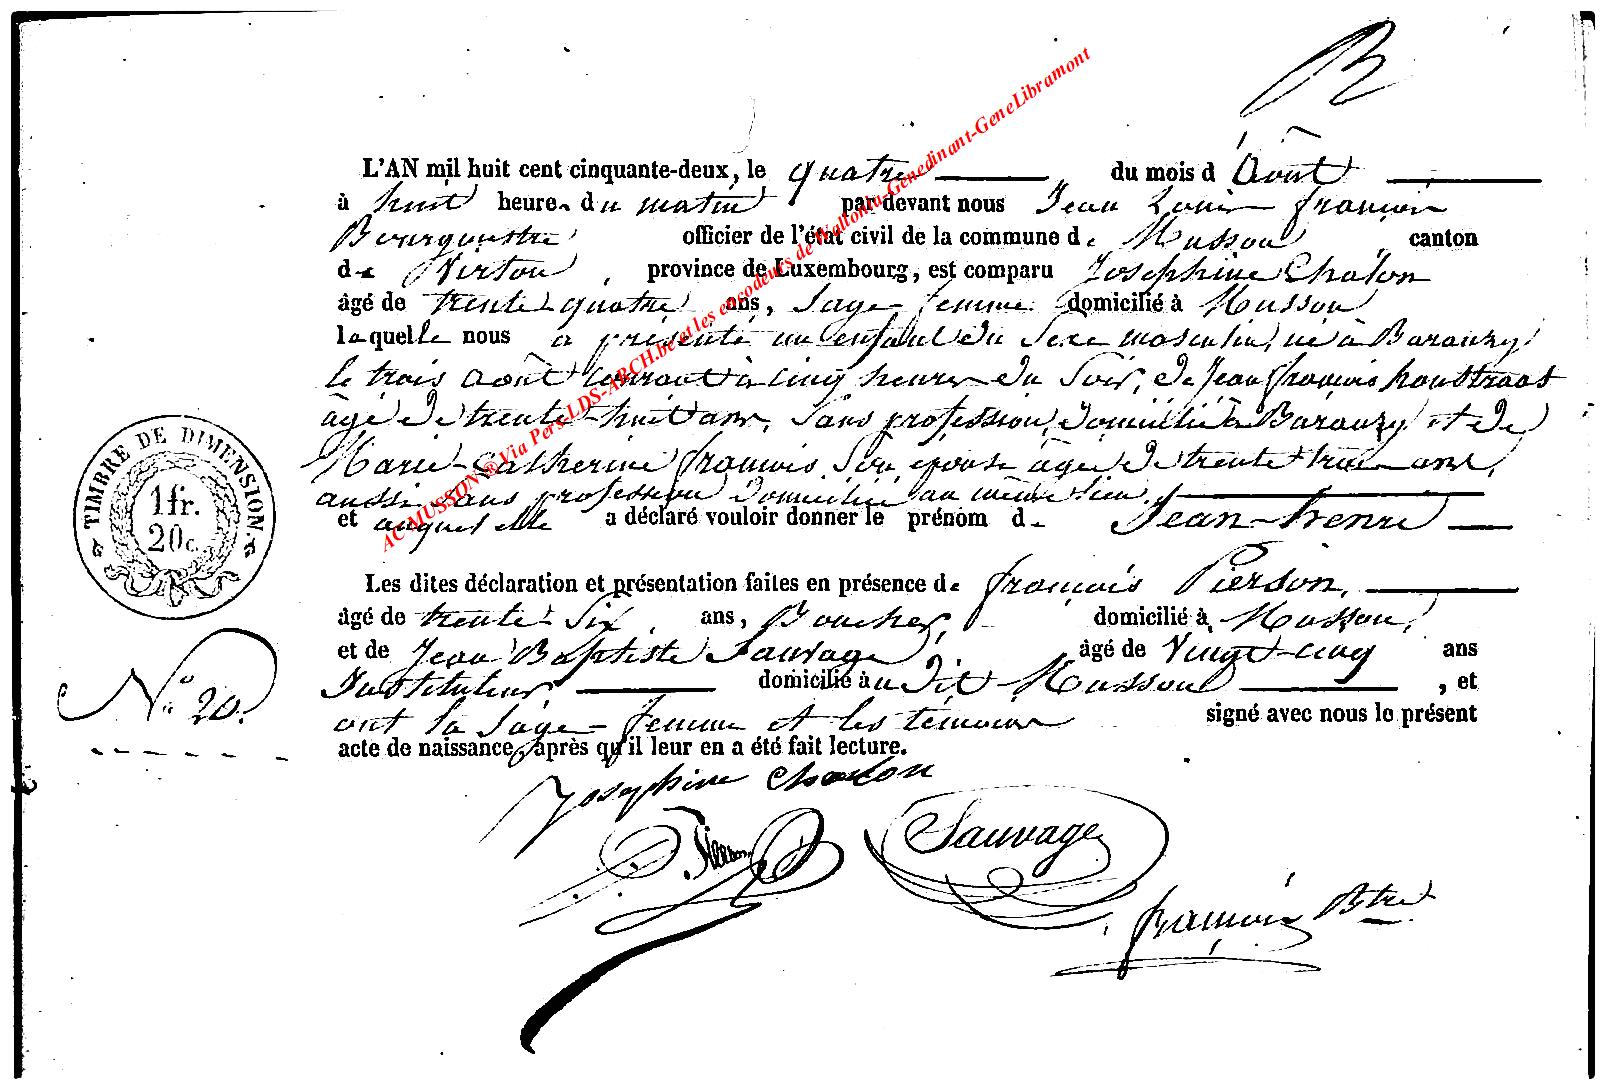 B
L'AN mil huit cent cinquante-deux, le quatre du mois d Août
à huit heures du matin par devant nous Jean Louis françois
Bourgmestre officier de l'état civil de la commune de Musson canton
de Virton, province de Luxembourg, est comparu Josephine Chalon
âgé de trente-quatre ans, Sage-femme domicilié à Musson
laquelle nous a présenté un enfant du Sexe masculin, né à Baranzy,
le trois Août courrant à cinq heures du Soir, de Jean françois houstraas
âgé de trente-huit ans, Sans profession, domicilié à Baranzy et de
Marie-Catherine françois Son epouse âgée de trente trois ans,
aussi sans profession domiciliée au même lieu,
et auquel elle a déclaré vouloir donner le prénom de Jean-henri
Les dites déclaration et présentation faites en présence de françois Pierson,
âgé de trente-Six ans, Boucher, domicilié à Musson,
et de Jean Baptiste Sauvage, âgé de Vingt-cinq ans
Instituteur domicilié au dit Musson, et
ont la Sage-femme et les témoins signé avec nous le présent
acte de naissance, après qu'il leur en a été fait lecture.
TIMBRE DE DIMENSION.
1 fr.
20 c.
No 20.
Josephine Chalon
Pierson
Sauvage
françois Btre
AC MUSSON ® Via Pers.LDS-ARCH.be et les encodeurs de Wallonia-Genedinant-GeneLibramont